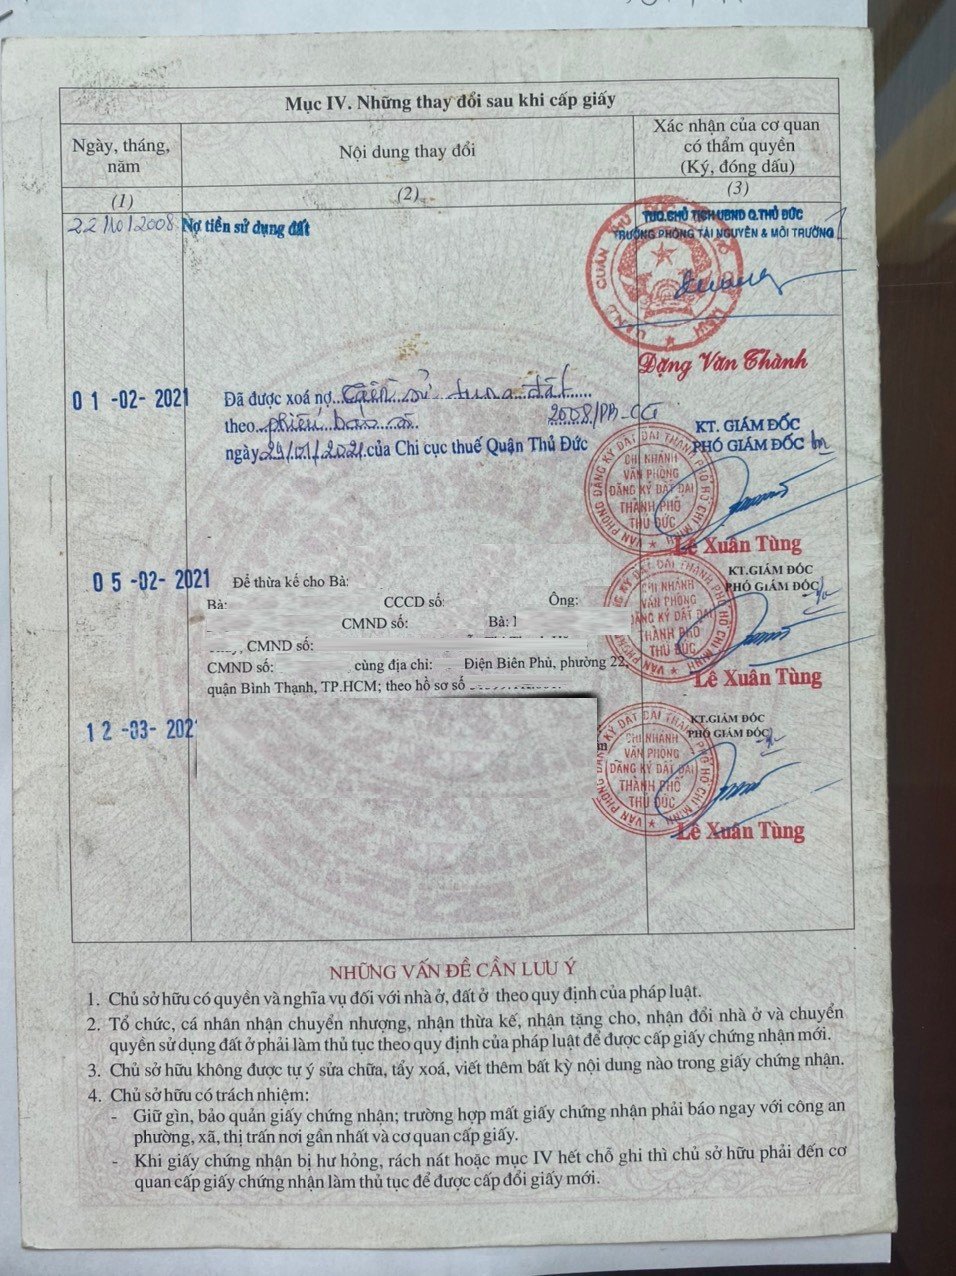 Mục IV. Những thay đổi sau khi cấp giấy
Ngày, tháng, năm
Nội dung thay đổi
Xác nhận của cơ quan có thẩm quyền (Ký, đóng dấu)
(1)
(2)
(3)
22/10/2008 Nợ tiền sử dụng đất
TUQ.CHỦ TỊCH UBND Q.THỦ ĐỨC
TRƯỞNG PHÒNG TÀI NGUYÊN & MÔI TRƯỜNG
Đặng Văn Thành
01-02-2021 Đã được xoá nợ tiền sử dụng đất
theo phiếu báo số 2008/PB-CCT
ngày 29/01/2021 của Chi cục thuế Quận Thủ Đức
KT. GIÁM ĐỐC
PHÓ GIÁM ĐỐC
CHI NHÁNH
VĂN PHÒNG
ĐĂNG KÝ ĐẤT ĐAI
THÀNH PHỐ
THỦ ĐỨC
VĂN PHÒNG ĐĂNG KÝ ĐẤT ĐAI THÀNH PHỐ HỒ CHÍ MINH
Lê Xuân Tùng
05-02-2021 Để thừa kế cho Bà:
Bà: CCCD số: Ông:
CMND số: Bà:
, CMND số:
CMND số: cùng địa chỉ: Điện Biên Phủ, phường 22,
quận Bình Thạnh, TP.HCM; theo hồ sơ số
KT.GIÁM ĐỐC
PHÓ GIÁM ĐỐC
CHI NHÁNH
VĂN PHÒNG
ĐĂNG KÝ ĐẤT ĐAI
THÀNH PHỐ
THỦ ĐỨC
Lê Xuân Tùng
12-03-202
KT.GIÁM ĐỐC
PHÓ GIÁM ĐỐC
CHI NHÁNH
VĂN PHÒNG
ĐĂNG KÝ ĐẤT ĐAI
THÀNH PHỐ
THỦ ĐỨC
VĂN PHÒNG ĐĂNG KÝ ĐẤT ĐAI THÀNH PHỐ HỒ CHÍ MINH
Lê Xuân Tùng
NHỮNG VẤN ĐỀ CẦN LƯU Ý
1. Chủ sở hữu có quyền và nghĩa vụ đối với nhà ở, đất ở theo quy định của pháp luật.
2. Tổ chức, cá nhân nhận chuyển nhượng, nhận thừa kế, nhận tặng cho, nhận đổi nhà ở và chuyển
quyền sử dụng đất ở phải làm thủ tục theo quy định của pháp luật để được cấp giấy chứng nhận mới.
3. Chủ sở hữu không được tự ý sửa chữa, tẩy xoá, viết thêm bất kỳ nội dung nào trong giấy chứng nhận.
4. Chủ sở hữu có trách nhiệm:
- Giữ gìn, bảo quản giấy chứng nhận; trường hợp mất giấy chứng nhận phải báo ngay với công an
phường, xã, thị trấn nơi gần nhất và cơ quan cấp giấy.
- Khi giấy chứng nhận bị hư hỏng, rách nát hoặc mục IV hết chỗ ghi thì chủ sở hữu phải đến cơ
quan cấp giấy chứng nhận làm thủ tục để được cấp đổi giấy mới.